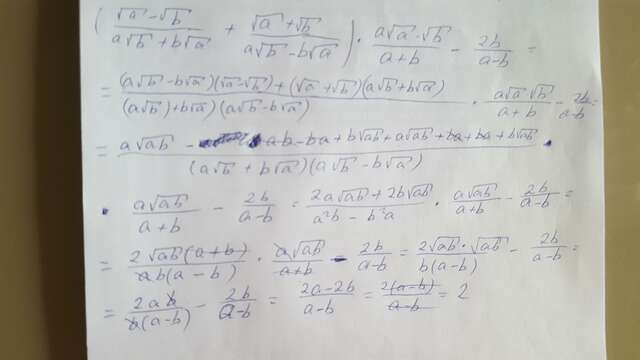 (√a - √b / a√b + b√a + √a + √b / a√b - b√a) · a√a · √b / a+b - 2b / a-b =
= (a√b - b√a)(√a - √b) + (√a + √b)(a√b + b√a) / (a√b) + b√a)(a√b - b√a) · a√a √b / a+b - 2b / a-b =
= a√ab - ab - ba + b√ab + a√ab + ba + ba + b√ab / (a√b + b√a)(a√b - b√a) ·
· a√ab / a+b - 2b / a-b = 2a√ab + 2b√ab / a²b - b²a · a√ab / a+b - 2b / a-b =
= 2√ab (a+b) / ab(a-b) · a√ab / a+b - 2b / a-b = 2√ab · √ab / b(a-b) - 2b / a-b =
= 2ab / b(a-b) - 2b / a-b = 2a-2b / a-b = 2(a-b) / a-b = 2